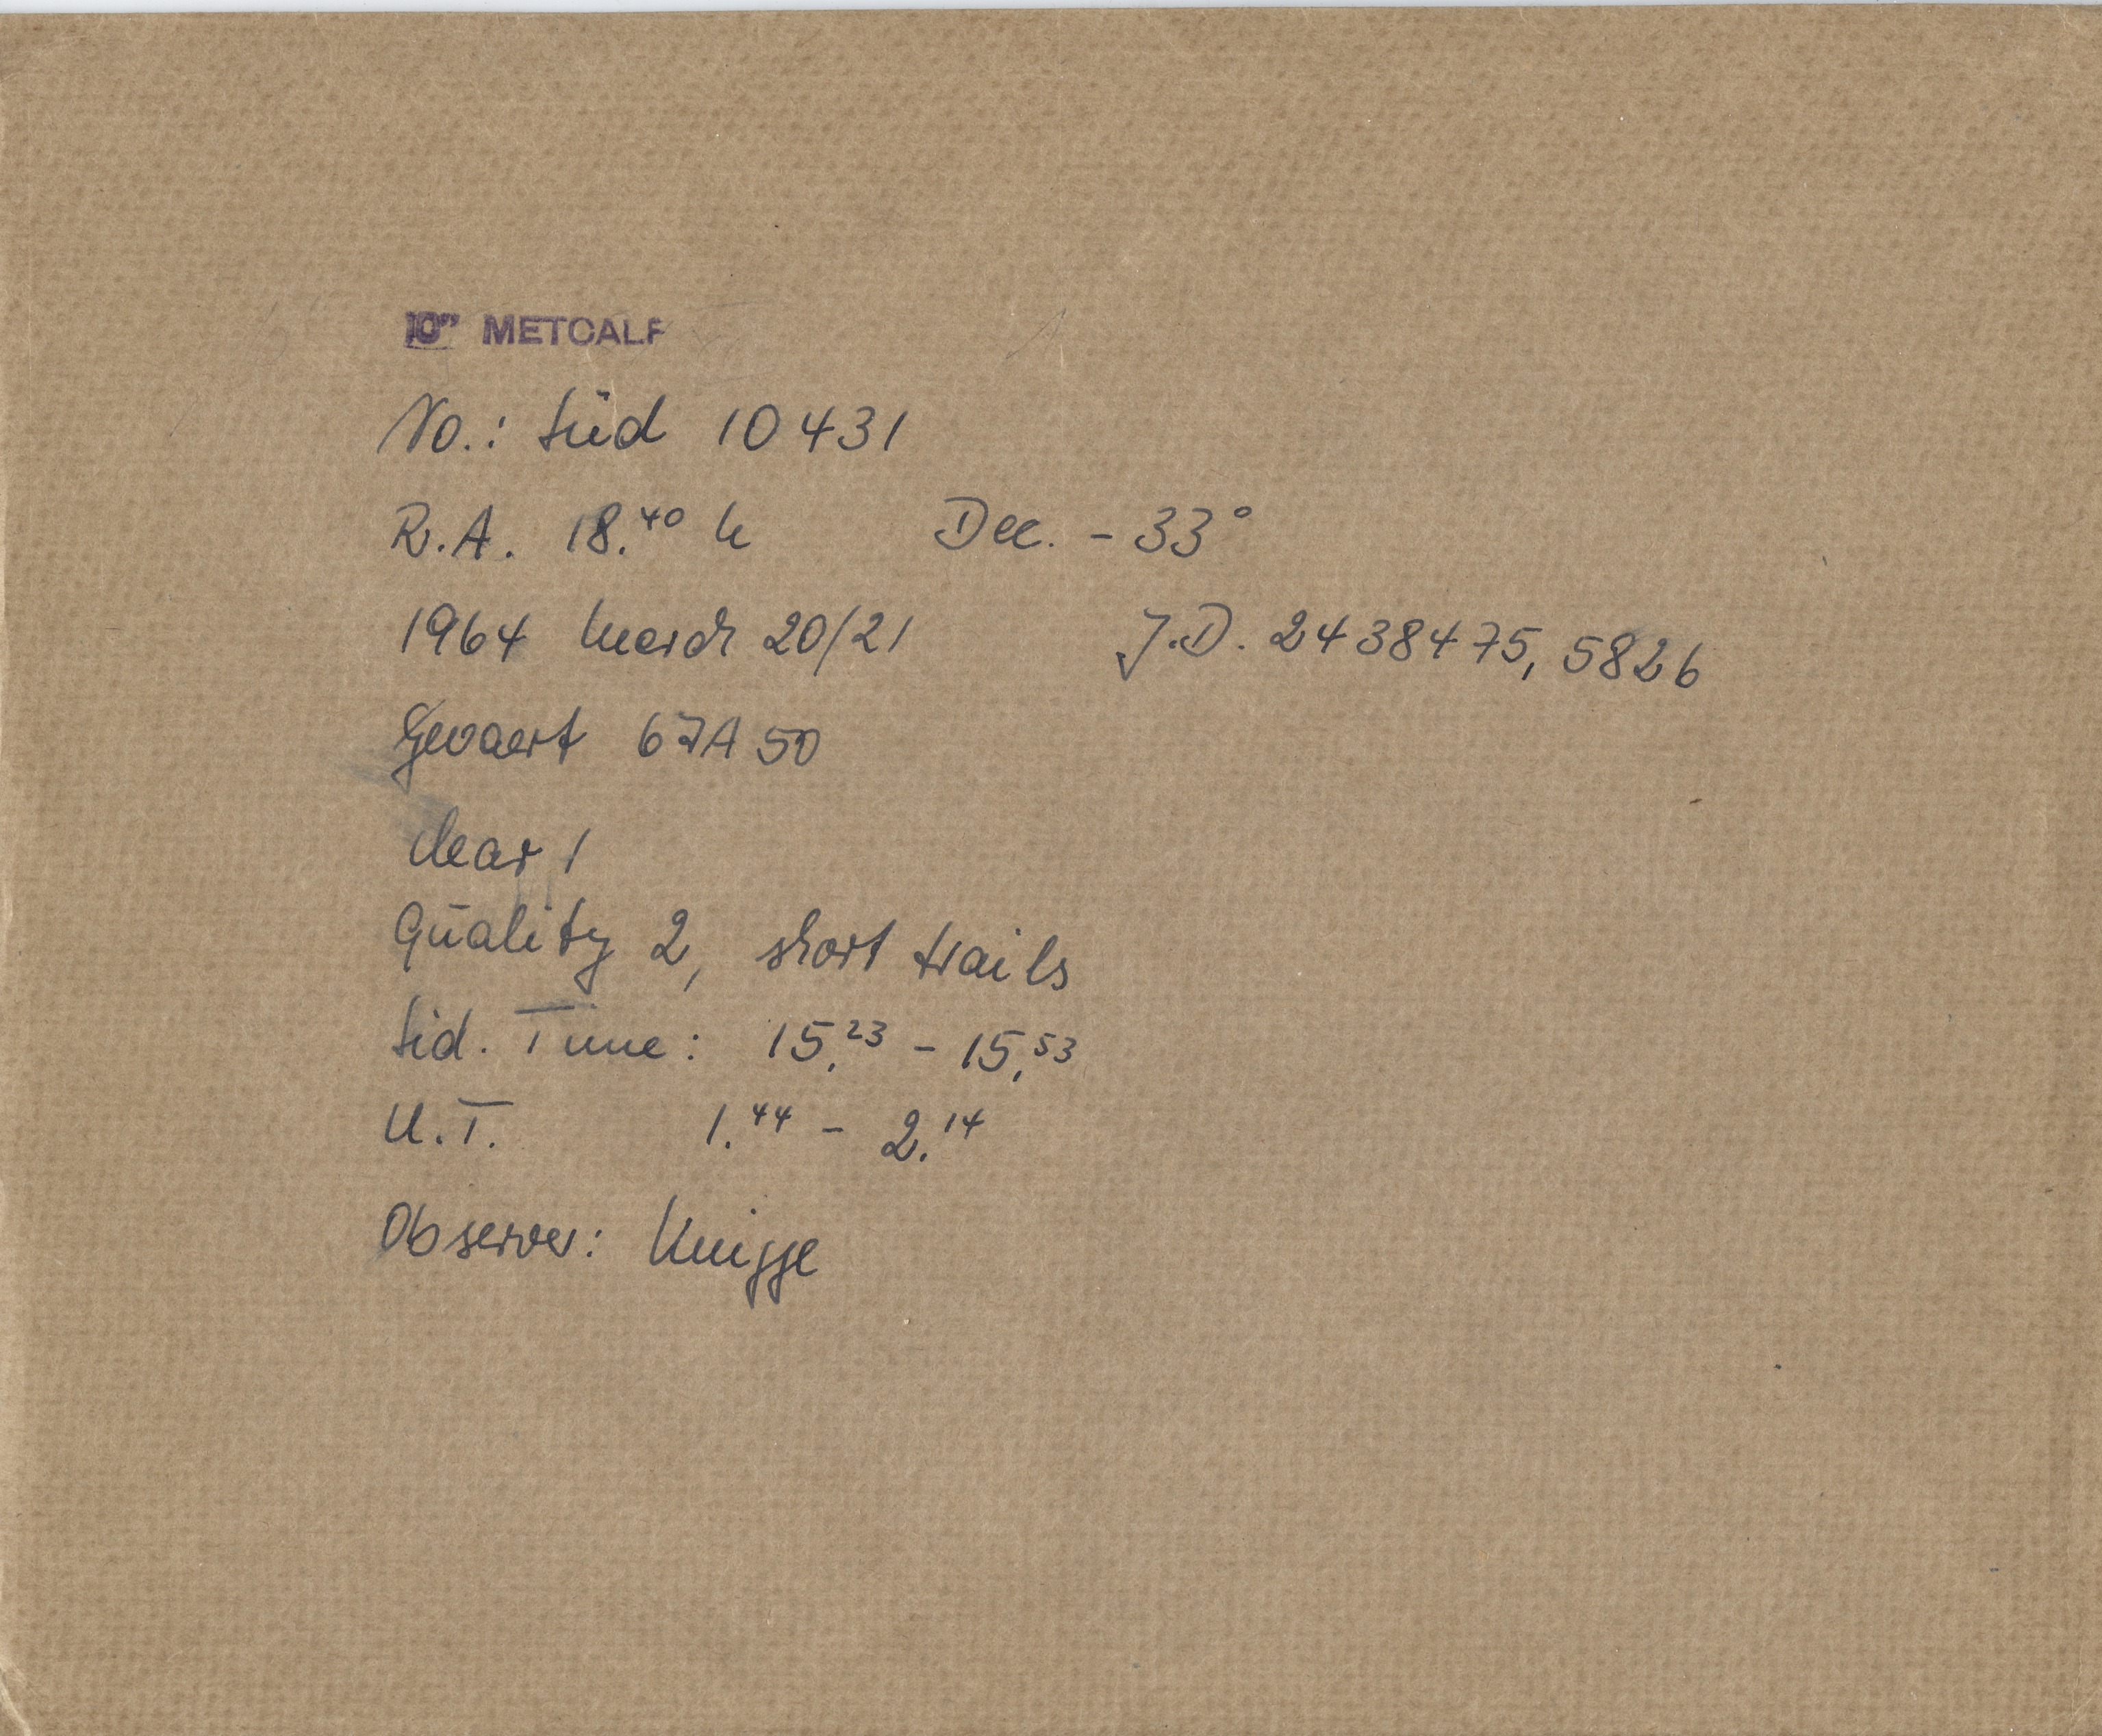 10" METCALF
No.: Süd 10431
R.A. 18.⁴⁰ h Dec. - 33°
1964 March 20/21 J.D. 2438475,5826
Gevaert 67A50
clear 1
Quality 2, short trails
Sid. Time: 15.²³ - 15.⁵³
U.T. 1.⁴⁴ - 2.¹⁴
Observer: Knigge